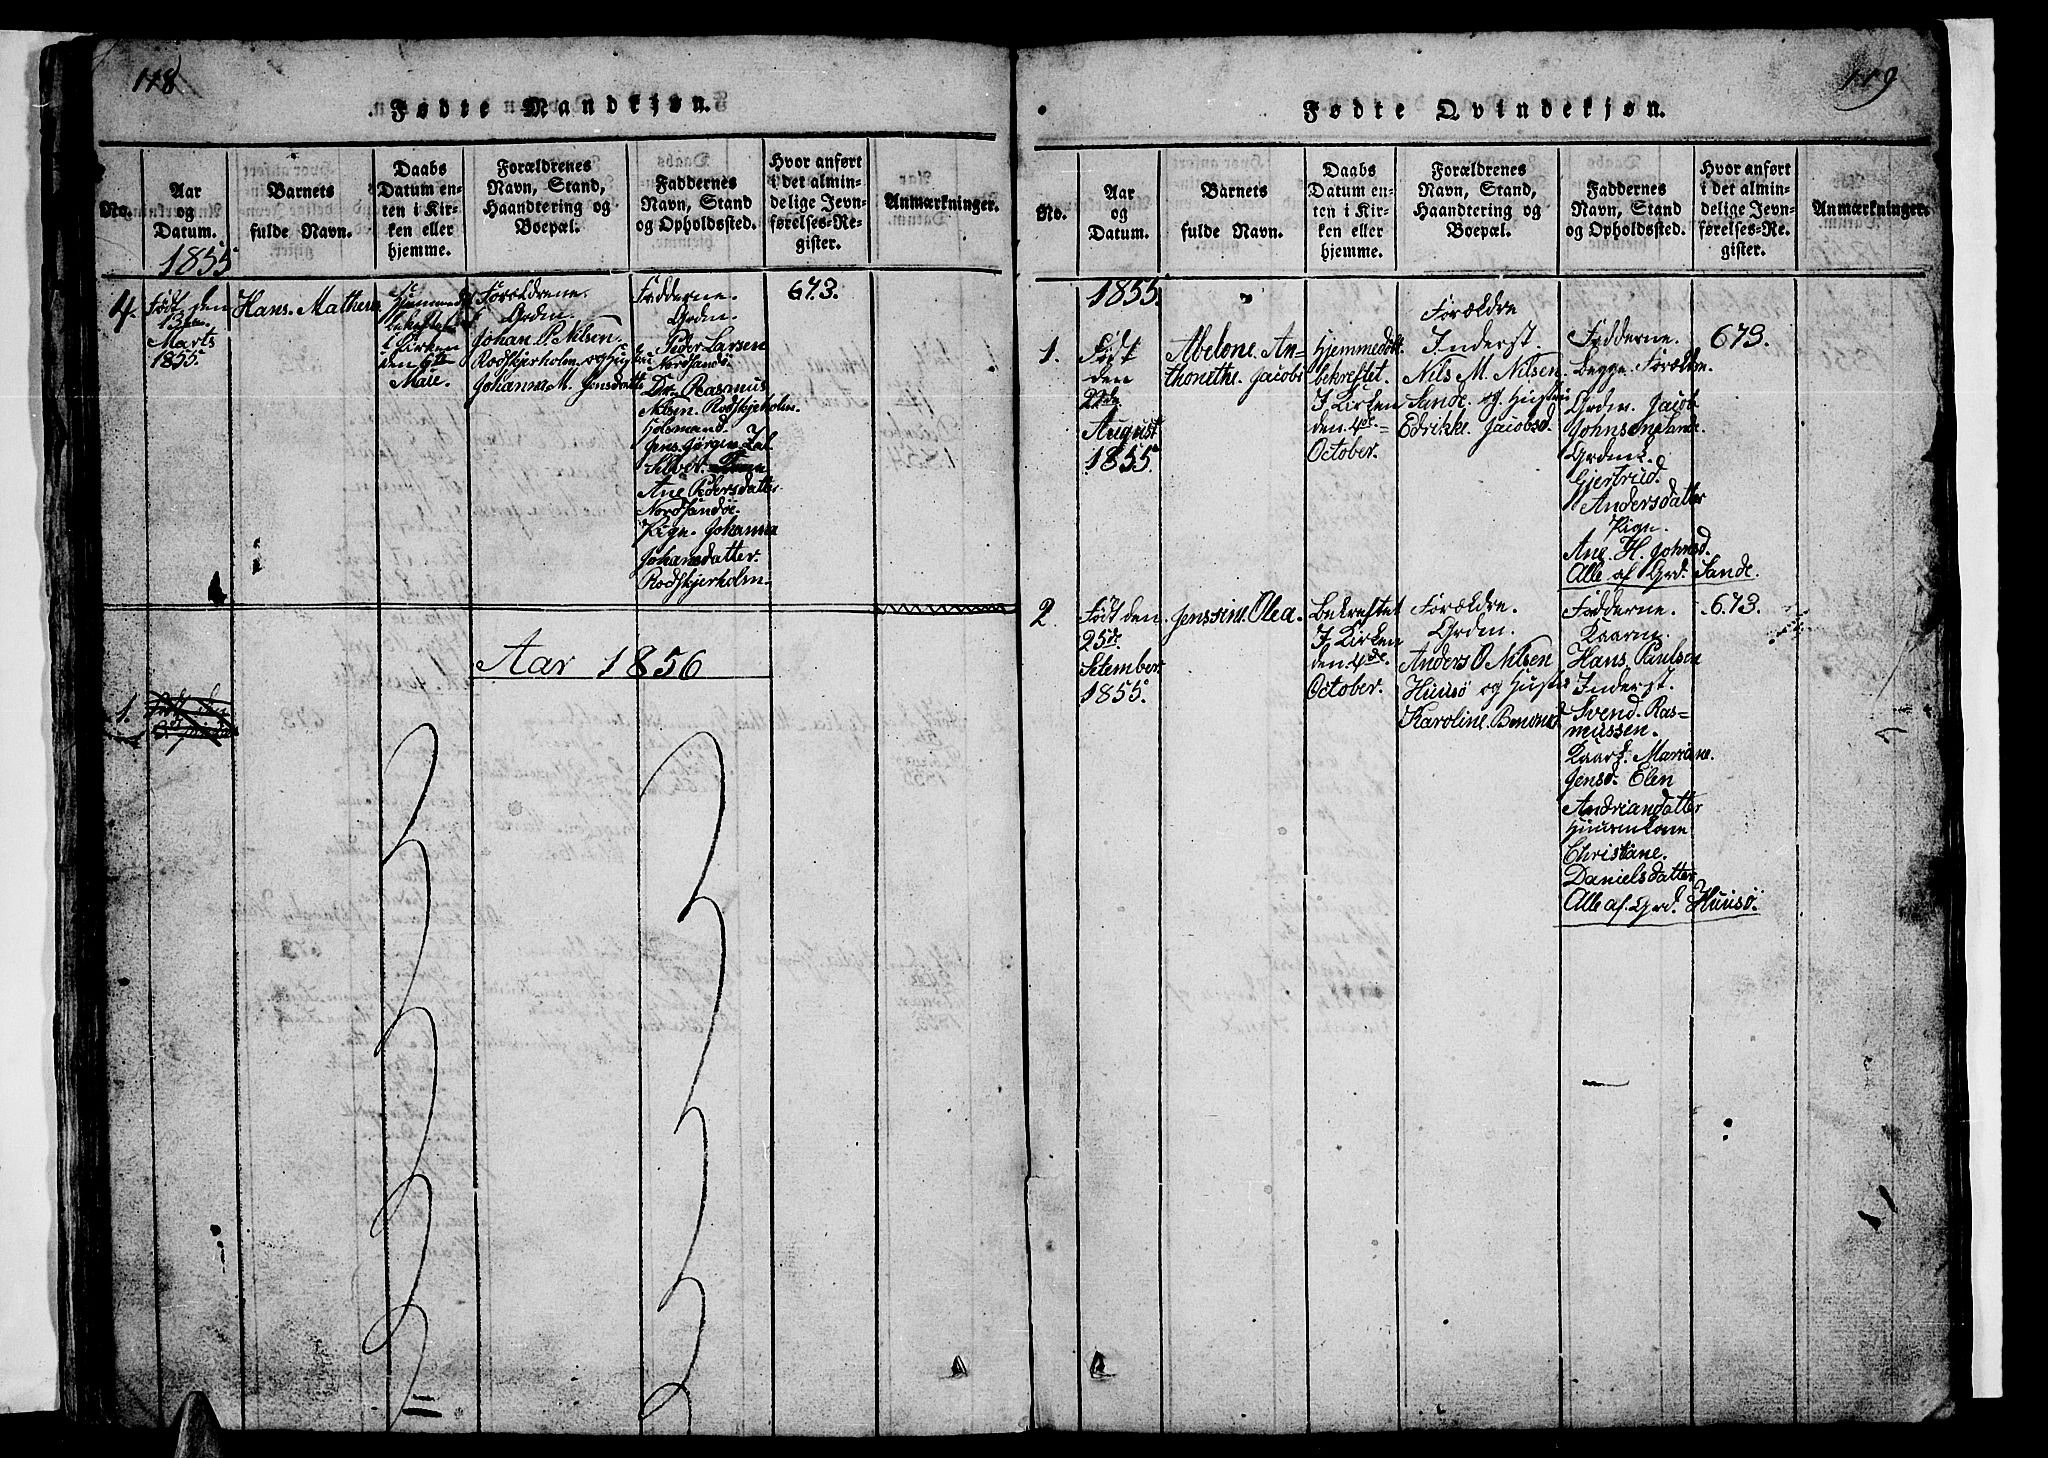 118
Fødte Mandkjøn.
No.
Aar
og
Datum.
Barnets
fulde Navn.
Daabs
Datum en-
ten i Kir-
ken eller
hjemme.
Forældrenes
Navn, Stand,
Haandtering og
Boepæl.
Faddernes
Navn, Stand
og Opholdssted.
Hvor anført
i det almin-
delige Jevn-
førelses-Re-
gister.
Anmærkninger.
1855
4.
Født den
13
Marts
1855.
Hans. Mathern
bekreftet
Kirken
den 6te
Maie.
Forældrene.
Grdm.
Johan P. Nilsen.
Rødskjerholm og Hustru
Johanna M. Jensdatter
Fadderne.
Grdm.
Peder Larsen
Nordsandø.
Do. Rasmus
Nilsen. Rødskjerholm.
Jens. Jørgen
Ane Pedersdatter
Nordsandøe.
Pign. Johanna
Johansdatter.
Rødskjerholm
673.
Aar 1856
1.
119
Fødte Qvindekjøn.
No.
Aar
og
Datum.
Barnets
fulde Navn.
Daabs
Datum en-
ten i Kir-
ken eller
hjemme.
Forældrenes
Navn, Stand,
Haandtering og
Boepæl.
Faddernes
Navn, Stand
og Opholdssted.
Hvor anført
i det almin-
delige Jevn-
førelses-Re-
gister.
Anmærkninger.
1855.
1.
Født
den
22de
August
1855.
Abelone. An-
thonethe. Jacobi
Hjemmedøbt
bekreftet.
I Kirken
den 4de
October.
Forældre
Inderst.
Nils M. Nilsen.
Sande. og Hustru
Edrikke. Jacobsd.
Fadderne.
Begge. Forældre.
Grdm. Jacob
Johnsen Sande.
Gjertrud.
Andersdatter
Pign.
Ane. H. Johnsd.
Alle af Grd. Sande.
673.
2.
Født den
25de
Setember
1855.
Jenssine. Olea.
Bekreftet
I Kirken
den 4de
October.
Forældre.
Grdm.
Anders O Nilsen
Huusø og Hustru
Karoline. Benons
Fadderne.
Kaarne.
Hans. Paulsen
Inderst.
Svend. Ras-
mussen.
Mariane.
Jensd. Elen
Andriandatter
Huusmkone
Christiane.
Danielsdatter
Alle af. Grd. Huusø.
673.